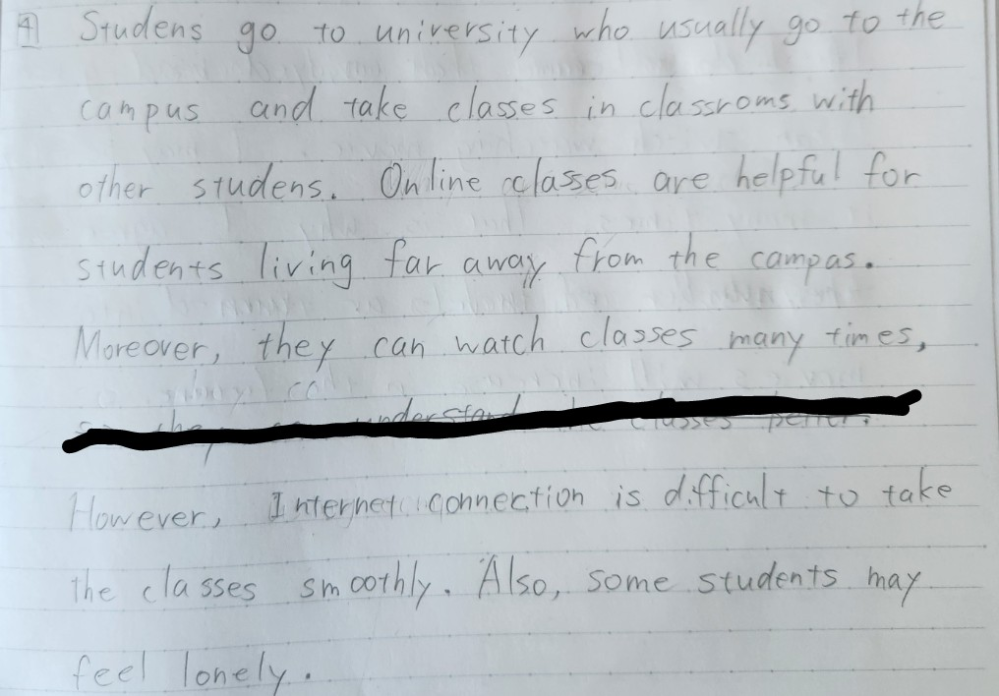 4 Studens go to university who usually go to the
campus and take classes in classroms with
other studens. Online classes are helpful for
students living far away from the campas.
Moreover, they can watch classes many times,
understand the classes better.
However, Internet connection is difficult to take
the classes smoothly. Also, some students may
feel lonely.